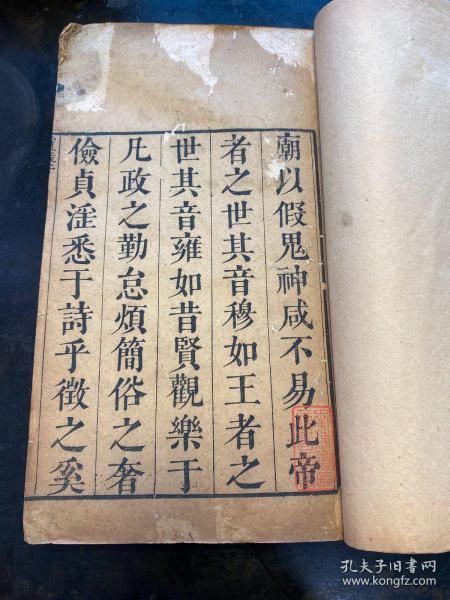 廟以假鬼神咸不易此帝
者之世其音穆如王者之
世其音雍如昔賢觀樂于
凡政之勤怠煩簡俗之奢
儉貞淫悉于詩乎徵之奚
孔夫子旧书网
www.kongfz.com